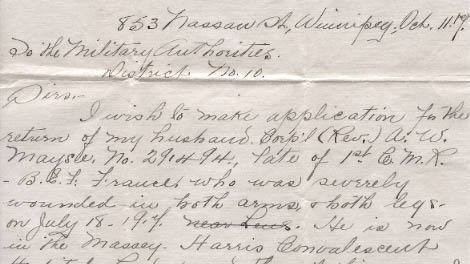 853 Nassau St, Winnipeg, Oct. 11th 17.
To the Military Authorities.
District No. 10.
Sirs,-
I wish to make application for the
return of my husband. Corp'l (Rev.) A. W.
Maysse, No. 291494, late of 1st C. M. R.
- B.E.F. France, who was severely
wounded in both arms, & both legs -
on July 18 - 1917. near Lens. He is now
in the Massey-Harris Convalescent